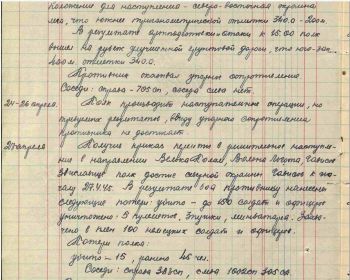 положение для наступления - северо-восточная окраина
леса, что южнее тригонометрической отметки 340.0 - 200м.
В результате артподготовки и атаки к 15.00 полк
вышел на рубеж улучшенной грунтовой дороги, что юго-зап
отметки 340.0.
Противник оказывал упорное сопротивление
Соседи: справа - 705 сп, соседа слева нет.
24-26 апреля. Полк производит наступательные операции, но
результатов, ввиду упорного сопротивления
противника не достигает.
27 апреля Получив приказ перейти в решительное наступле-
ние в направлении
полк достиг северной окраины к
27.4.45. В результате боя противнику нанесены
следующие потери: убито - до 150 солдат и офицеров
уничтожено - 5 пулеметов, 3 пушки, миномета.
в плен 100 немецких солдат и офицеров.
Потери полка:
убито - 15, ранено 45 чел.
Соседи: справа сп, слева сп